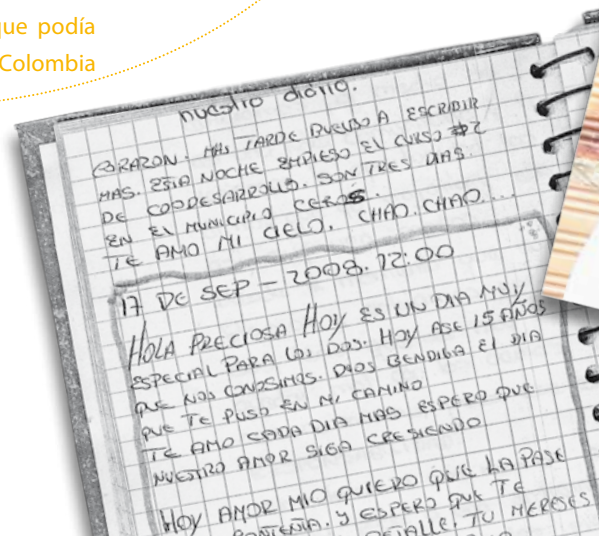 que podía
Colombia
nuestro diario.
CORAZON. MAS TARDE BUELBO A ESCRIDIR
MAS. ESTA NOCHE EMPIESO EL CURSO #2
DE CODESARROLLO. SON TRES DIAS.
EN EL MUNICIPIO CEROS.
TE AMO MI CIELO. CHAO. CHAO....
17 DE SEP - 2008. 12:00
HOLA PRECIOSA HOY ES UN DIA MUY
ESPECIAL PARA LOS DOS. HOY ASE 15 AÑOS
QUE NOS CONOSIMOS. DIOS BENDIGA EL DIA
QUE TE PUSO EN MI CAMINO
TE AMO CADA DIA MAS ESPERO QUE
NUESTRO AMOR SIGA CRESIENDO
HOY AMOR MIO QUIERO QUE LA PASE
CONTENTA. Y ESPERO QUE TE
DETALLE. TU MERESES